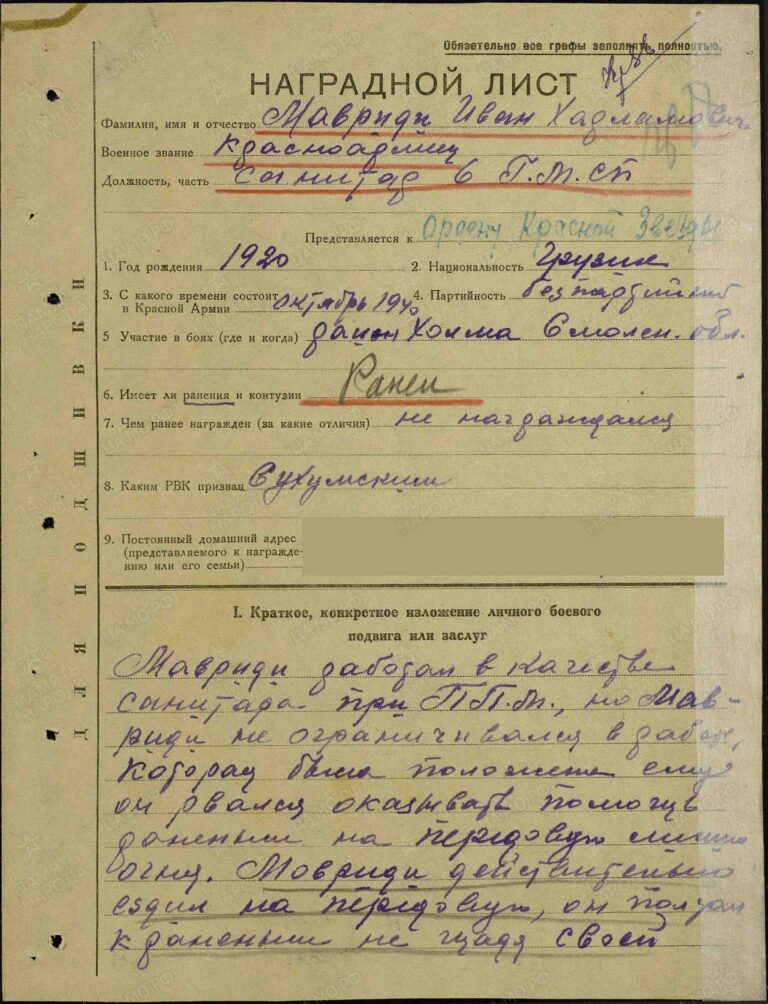 Обязательно все графы заполнять полностью.
НАГРАДНОЙ ЛИСТ
Фамилия, имя и отчество Мавриди Иван Харламович
Военное звание Красноармиец
Должность, часть санитар 6 Г.М.СП
Представляется к Ордену Красной Звезды
1. Год рождения 1920 2. Национальность Грузин
3. С какого времени состоит в Красной Армии октябрь 1940 4. Партийность безпартийный
5 Участие в боях (где и когда) район Холма Смолен. обл.
6. Имеет ли ранения и контузии Ранен
7. Чем ранее награжден (за какие отличия) не награждался
8. Каким РВК призван Сухумским
9. Постоянный домашний адрес
(представляемого к награжде-
нию или его семьи)
ДЛЯ ПОДШИВКИ
I. Краткое, конкретное изложение личного боевого
подвига или заслуг
Мавриди работал в качестве
санитара при П.П.М., но Мав-
риди не ограничивался в работе,
которая была положена ему
он рвался оказывать помощь
раненым на передовую линию
огня. Мовриди действительно
ездил на передовую, он ползал
к раненым не щадя своей